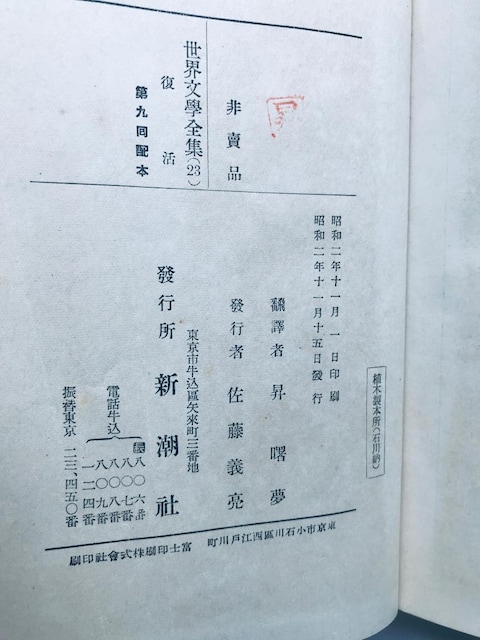 非賣品
世界文學全集(23)
復活
第九回配本
昭和二年十一月一日印刷
昭和二年十一月十五日發行
飜譯者 昇曙夢
發行者 佐藤義亮
東京市牛込區矢來町三番地
發行所 新潮社
電話牛込
八〇六番
八〇七番
八〇八番
八〇九番
一二四番
振替東京 二三、四五〇番
植木製本所(石川納)
東京市小石川區西江戸川町 富士印刷株式會社印刷